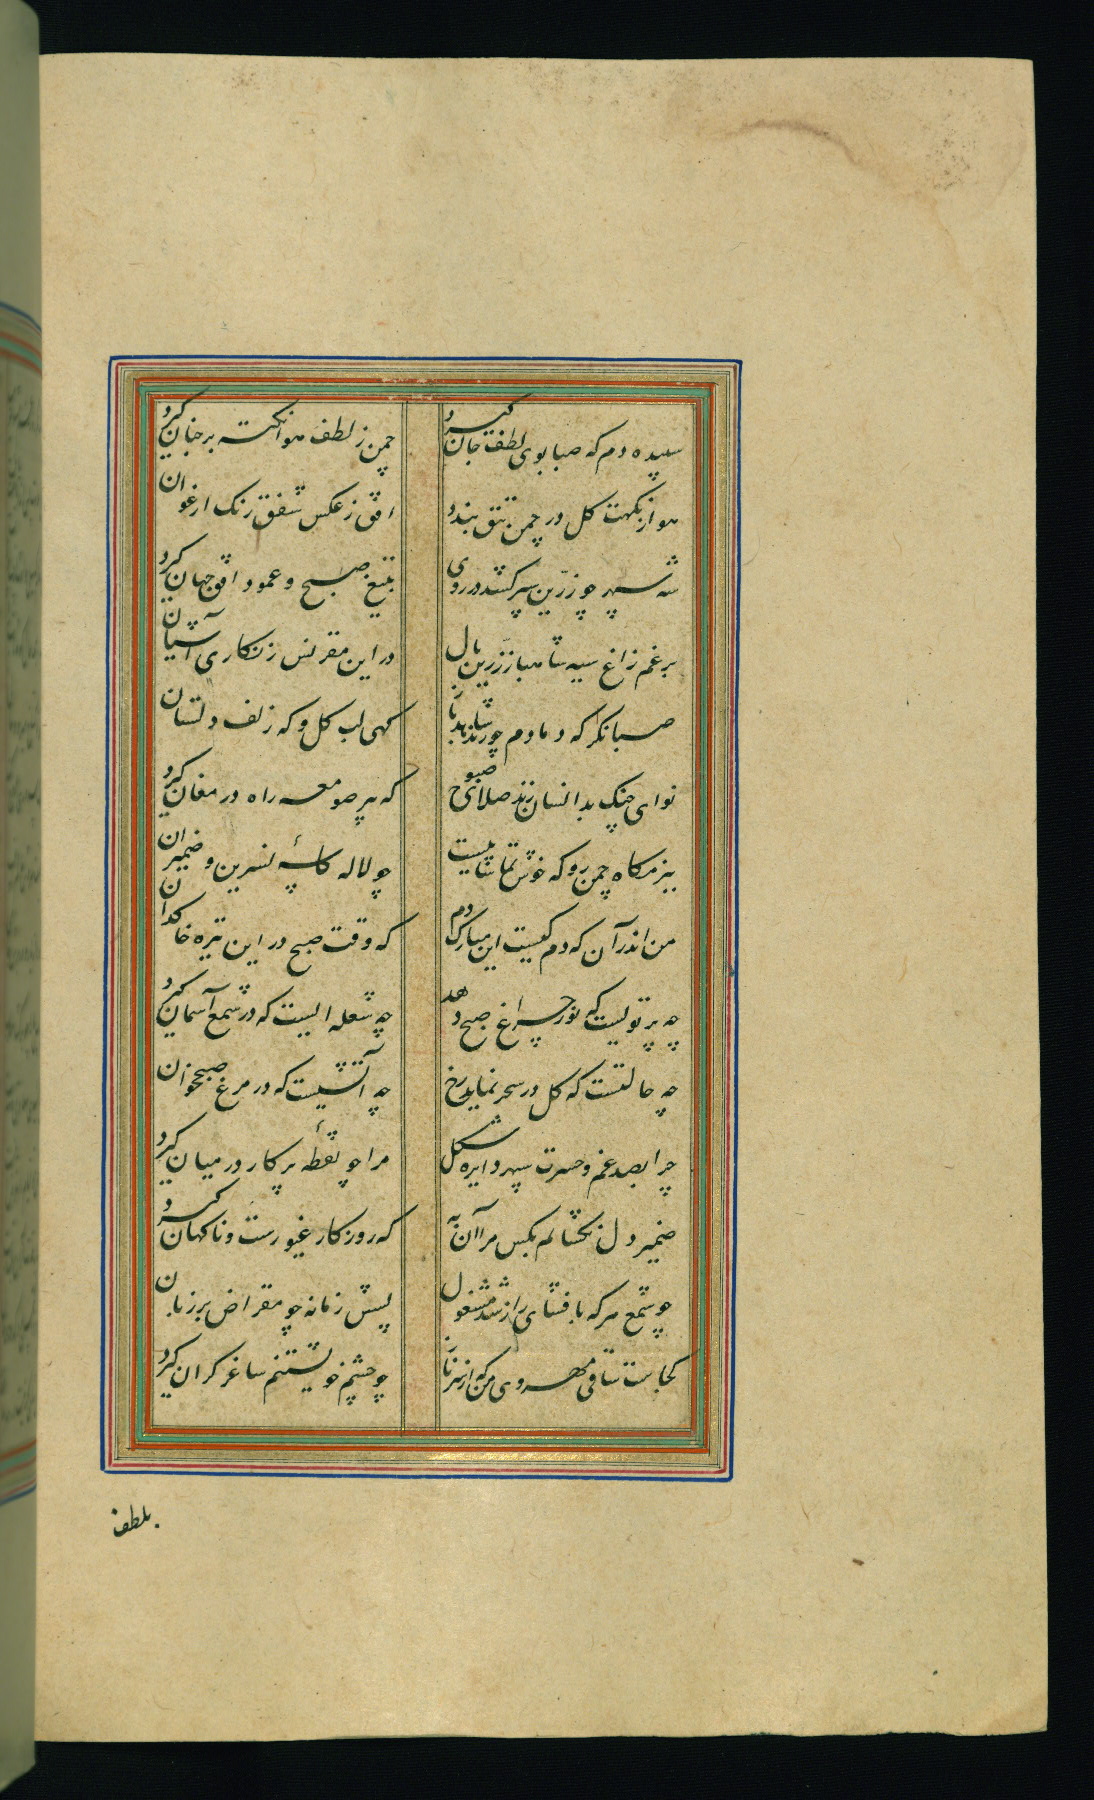 سپیده دم که صبا بوی لطف جان گیرد	چمن ز لطف هوا نکته بر جنان گیرد
هوا ز نکهت گل در چمن تتق بندد	افق ز عکس شفق رنگ ارغوان
شه سپهر چو زرین سپر کشد در روی	بتیغ صبح و عمود افق جهان گیرد
برغم زاغ سیه شاهباز زرین بال	در این مقرنس زنگاری آشیان
صبا نگر که دمادم چو رند شاهد باز	گهی لب گل و گه زلف دلستان
نوای چنگ بدانسان زند صلای صبوح	که پیر صومعه راه در مغان گیرد
ببزمگاه چمن رو که خوش تماشاییست	چو لاله کاسهٔ نسرین و ضمیران
من اندر آن که دم کیست این مبارک دم	که وقت صبح در این تیره خاکدان
چه پرتویست که نور چراغ صبح دهد	چه شعله ایست که در شمع آسمان گیرد
چه حالتست که گل در سحر نماید رخ	چه آتشیست که در مرغ صبح خوان
چرا بصد غم و حسرت سپهر دایره شکل	مرا چو نقطهٔ پرکار در میان گیرد
ضمیر دل نگشایم بکس مرا آن به	که روزگار غیورست و ناگهان گیرد
چو شمع هر که بافشای راز شد مشغول	بسش زمانه چو مقراض بر زبان
کجاست ساقی مهروی من که از سر ناز	چو چشم خویشتنم ساغر گران گیرد
بلطف